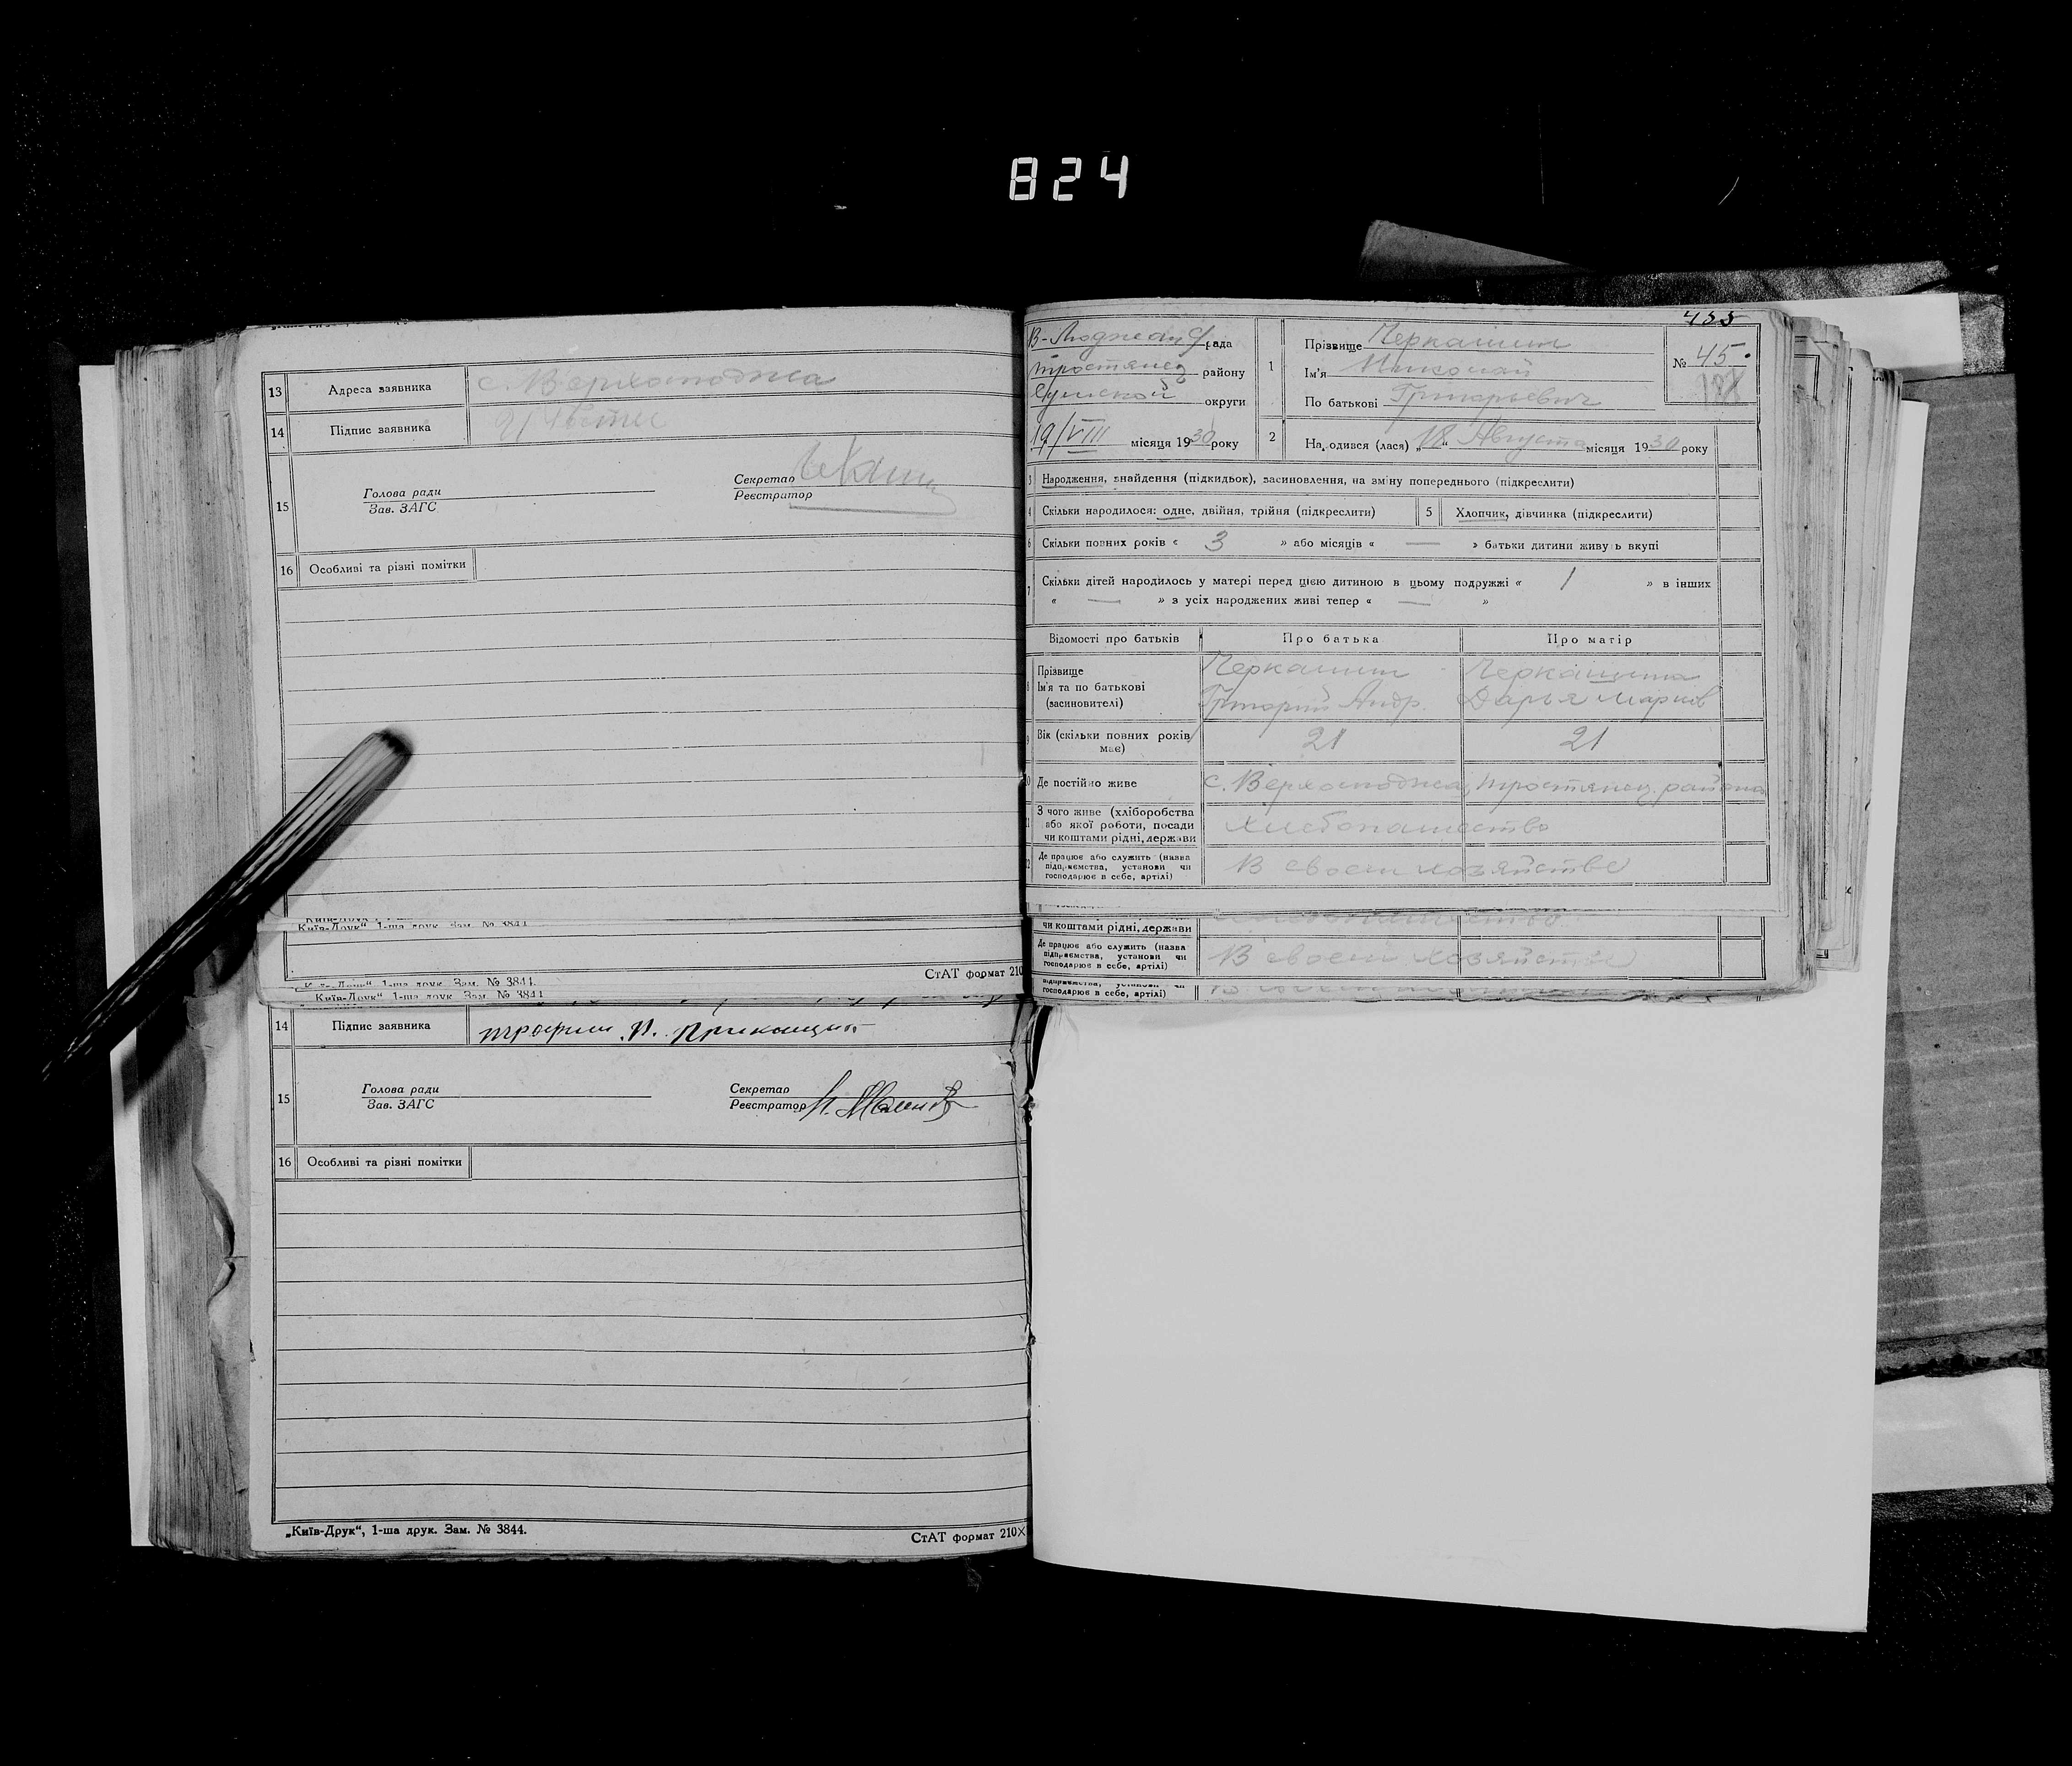 824
13 Адреса заявника с. Верхолюджа
14 Підпис заявника
15 Голова ради Секретар
Зав. ЗАГС Реєстратор
16 Особливі та різні помітки
„Київ-Друк“ 1-ша друк. Зам. № 3844
СтАТ формат 210
„Київ-Друк“ 1-ша друк. Зам. № 3844.
„Київ-Друк“ 1-ша друк. Зам. № 3844
14 Підпис заявника
15 Голова ради Секретар
Зав. ЗАГС Реєстратор
16 Особливі та різні помітки
„Київ-Друк“, 1-ша друк. Зам. № 3844.
СтАТ формат 210×
455
рада
Тростянец району
Сумской округи
19/VIII місяця 1930 року
1 Прізвище Черкашин
Ім'я Николай
По батькові Григорьевич
№ 45
2 Народився (лася) „18“ Августа місяця 1930 року
3 Народження, знайдення (підкидьок), засиновлення, на зміну попереднього (підкреслити)
4 Скільки народилося: одне, двійня, трійня (підкреслити) 5 Хлопчик, дівчинка (підкреслити)
6 Скільки повних років « 3 » або місяців « — » батьки дитини живуть вкупі
7 Скільки дітей народилось у матері перед цією дитиною в цьому подружжі « 1 » в інших
« — » з усіх народжених живі тепер « — »
Відомості про батьків Про батька Про матір
8 Прізвище Черкашин Черкашина
Ім'я та по батькові Григорий Андр. Дарья Марков
(засиновителі)
9 Вік (скільки повних років має) 21 21
10 Де постійно живе с. Верхолюджа, Тростянец. района
11 З чого живе (хліборобства
або якої роботи, посади хлебопашество
чи коштами рідні, держави
12 Де працює або служить (назва
підприємства, установи чи В своем хозяйстве
господарює в себе, артілі)
чи коштами рідні, держави
Де працює або служить (назва
підприємства, установи чи В своем хозяйстве
господарює в себе, артілі)
господарює в себе, артілі)